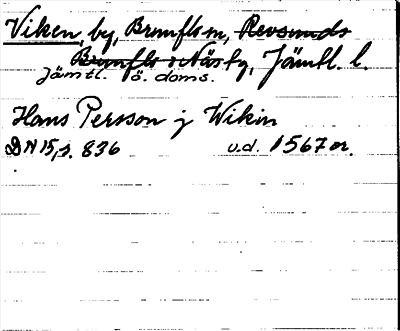 Viken, by, Brunflo sn, Revsunds
Brunflo o Näsby, Jämtl. l.
Jämtl. ö. doms.
Hans Persson j Wikin
DN 15, s. 836 u.d. 1567 or.